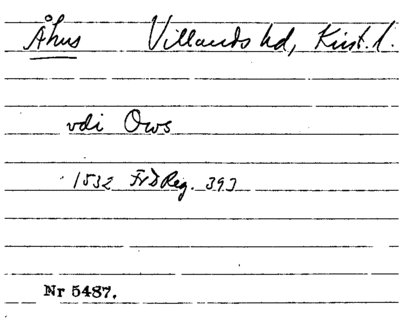 Åhus Villands hd, Krist. l.
vdi Ows
1532 FrDReg. 393
Nr 5487.